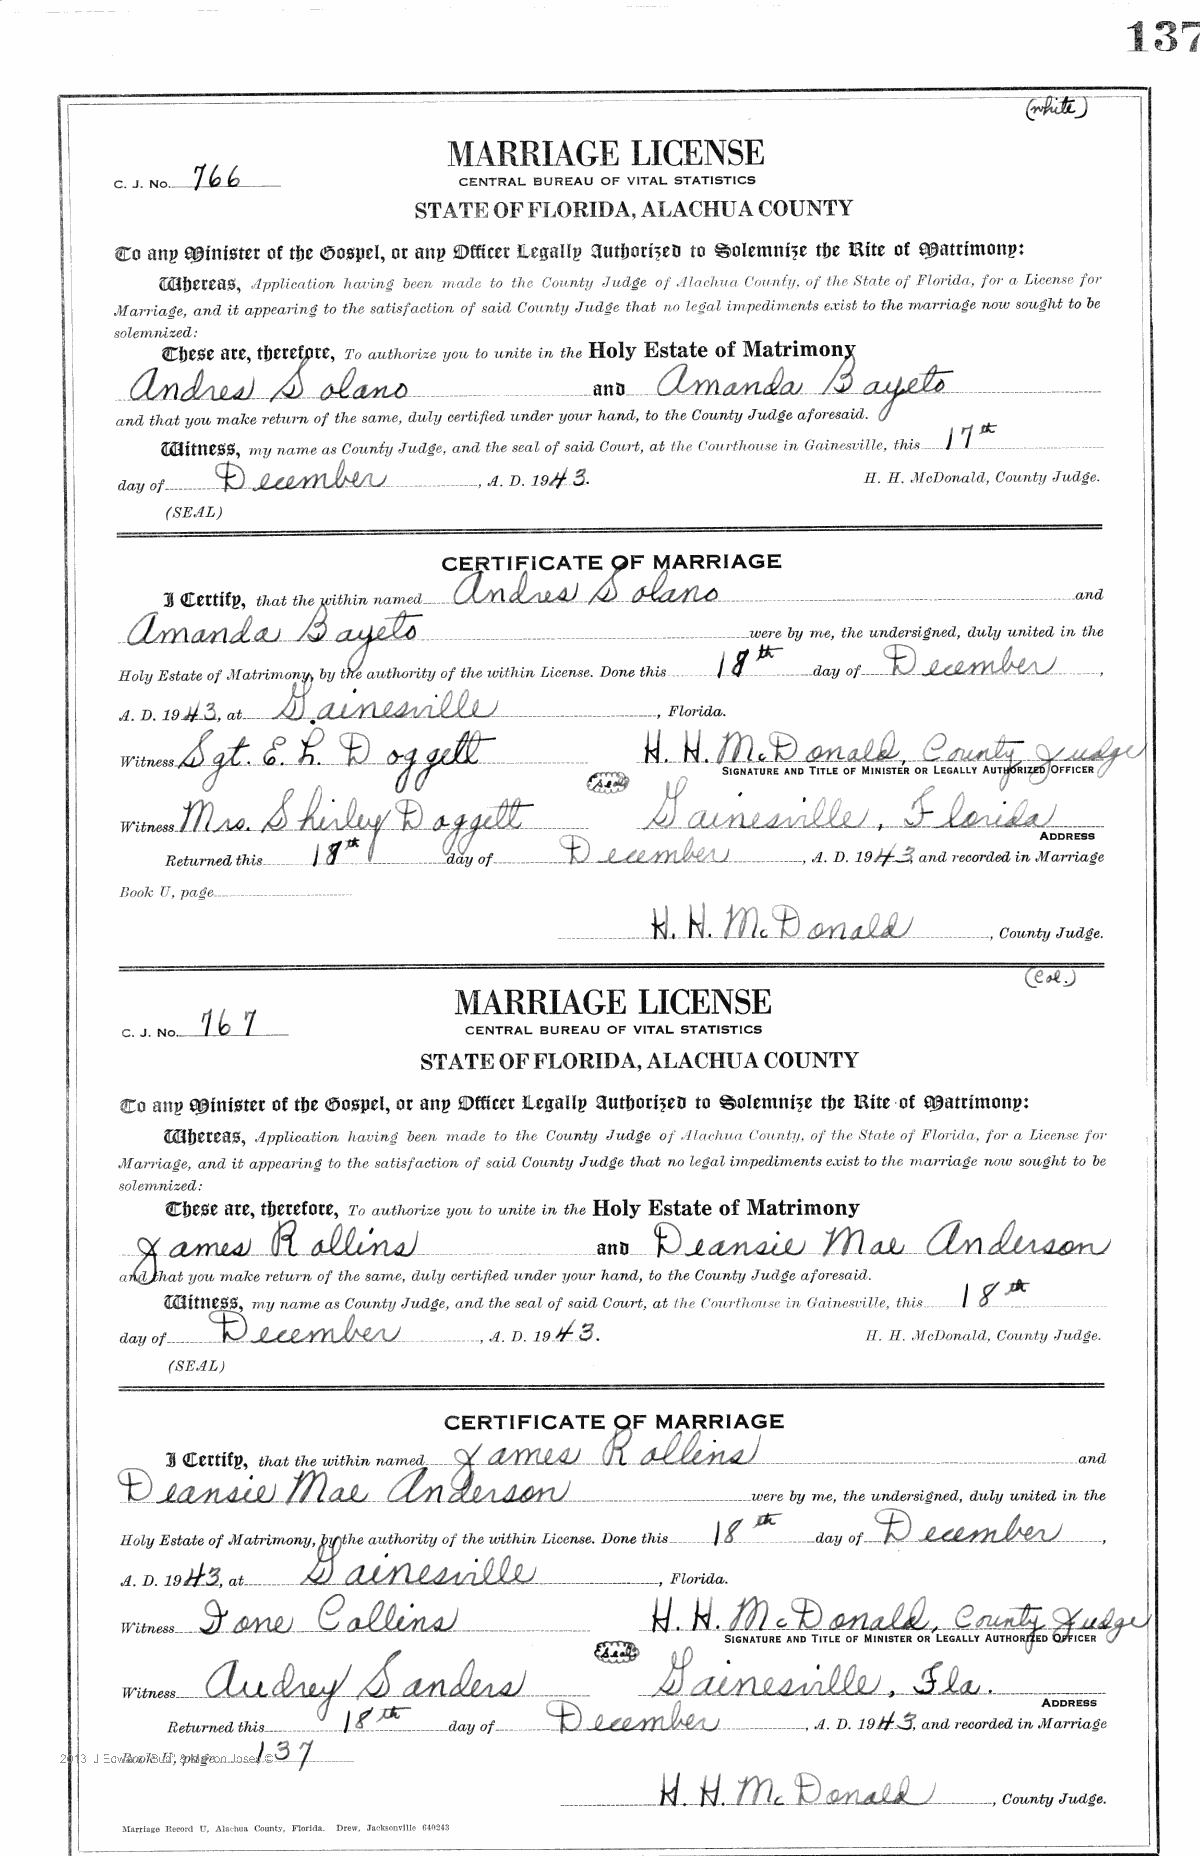 137
(white)
MARRIAGE LICENSE
C. J. No. 766
CENTRAL BUREAU OF VITAL STATISTICS
STATE OF FLORIDA, ALACHUA COUNTY
To any Minister of the Gospel, or any Officer Legally Authorized to Solemnize the Rite of Matrimony:
Whereas, Application having been made to the County Judge of Alachua County, of the State of Florida, for a License for
Marriage, and it appearing to the satisfaction of said County Judge that no legal impediments exist to the marriage now sought to be
solemnized:
These are, therefore, To authorize you to unite in the Holy Estate of Matrimony
Andres Solano and Amanda Bayeto
and that you make return of the same, duly certified under your hand, to the County Judge aforesaid.
Witness, my name as County Judge, and the seal of said Court, at the Courthouse in Gainesville, this 17th
day of December, A. D. 1943. H. H. McDonald, County Judge.
(SEAL)
CERTIFICATE OF MARRIAGE
I Certify, that the within named Andres Solano and
Amanda Bayeto were by me, the undersigned, duly united in the
Holy Estate of Matrimony, by the authority of the within License. Done this 18th day of December,
A. D. 1943, at Gainesville, Florida.
Witness Sgt. E. L. Doggett H. H. McDonald, County Judge
SIGNATURE AND TITLE OF MINISTER OR LEGALLY AUTHORIZED OFFICER
(Seal)
Witness Mrs. Shirley Doggett Gainesville, Florida
ADDRESS
Returned this 18th day of December, A. D. 1943, and recorded in Marriage
Book U, page
H. H. McDonald, County Judge.
(Col.)
MARRIAGE LICENSE
C. J. No. 767
CENTRAL BUREAU OF VITAL STATISTICS
STATE OF FLORIDA, ALACHUA COUNTY
To any Minister of the Gospel, or any Officer Legally Authorized to Solemnize the Rite of Matrimony:
Whereas, Application having been made to the County Judge of Alachua County, of the State of Florida, for a License for
Marriage, and it appearing to the satisfaction of said County Judge that no legal impediments exist to the marriage now sought to be
solemnized:
These are, therefore, To authorize you to unite in the Holy Estate of Matrimony
James Rollins and Deansie Mae Anderson
and that you make return of the same, duly certified under your hand, to the County Judge aforesaid.
Witness, my name as County Judge, and the seal of said Court, at the Courthouse in Gainesville, this 18th
day of December, A. D. 1943. H. H. McDonald, County Judge.
(SEAL)
CERTIFICATE OF MARRIAGE
I Certify, that the within named James Rollins and
Deansie Mae Anderson were by me, the undersigned, duly united in the
Holy Estate of Matrimony, by the authority of the within License. Done this 18th day of December,
A. D. 1943, at Gainesville, Florida.
Witness Ione Collins H. H. McDonald, County Judge
SIGNATURE AND TITLE OF MINISTER OR LEGALLY AUTHORIZED OFFICER
(Seal)
Witness Audrey Sanders Gainesville, Fla.
ADDRESS
Returned this 18th day of December, A. D. 1943, and recorded in Marriage
Book U, page 137
H. H. McDonald, County Judge.
Marriage Record U, Alachua County, Florida. Drew, Jacksonville 640243